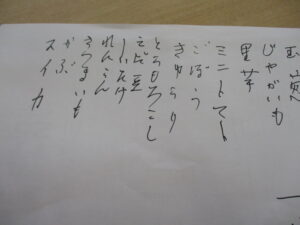 玉葱
じゃがいも
里芋
ミニトマト
ごぼう
きゅうり
とうもろこし
えだ豆
しいたけ
れんこん
さつまいも
かぶ
スイカ